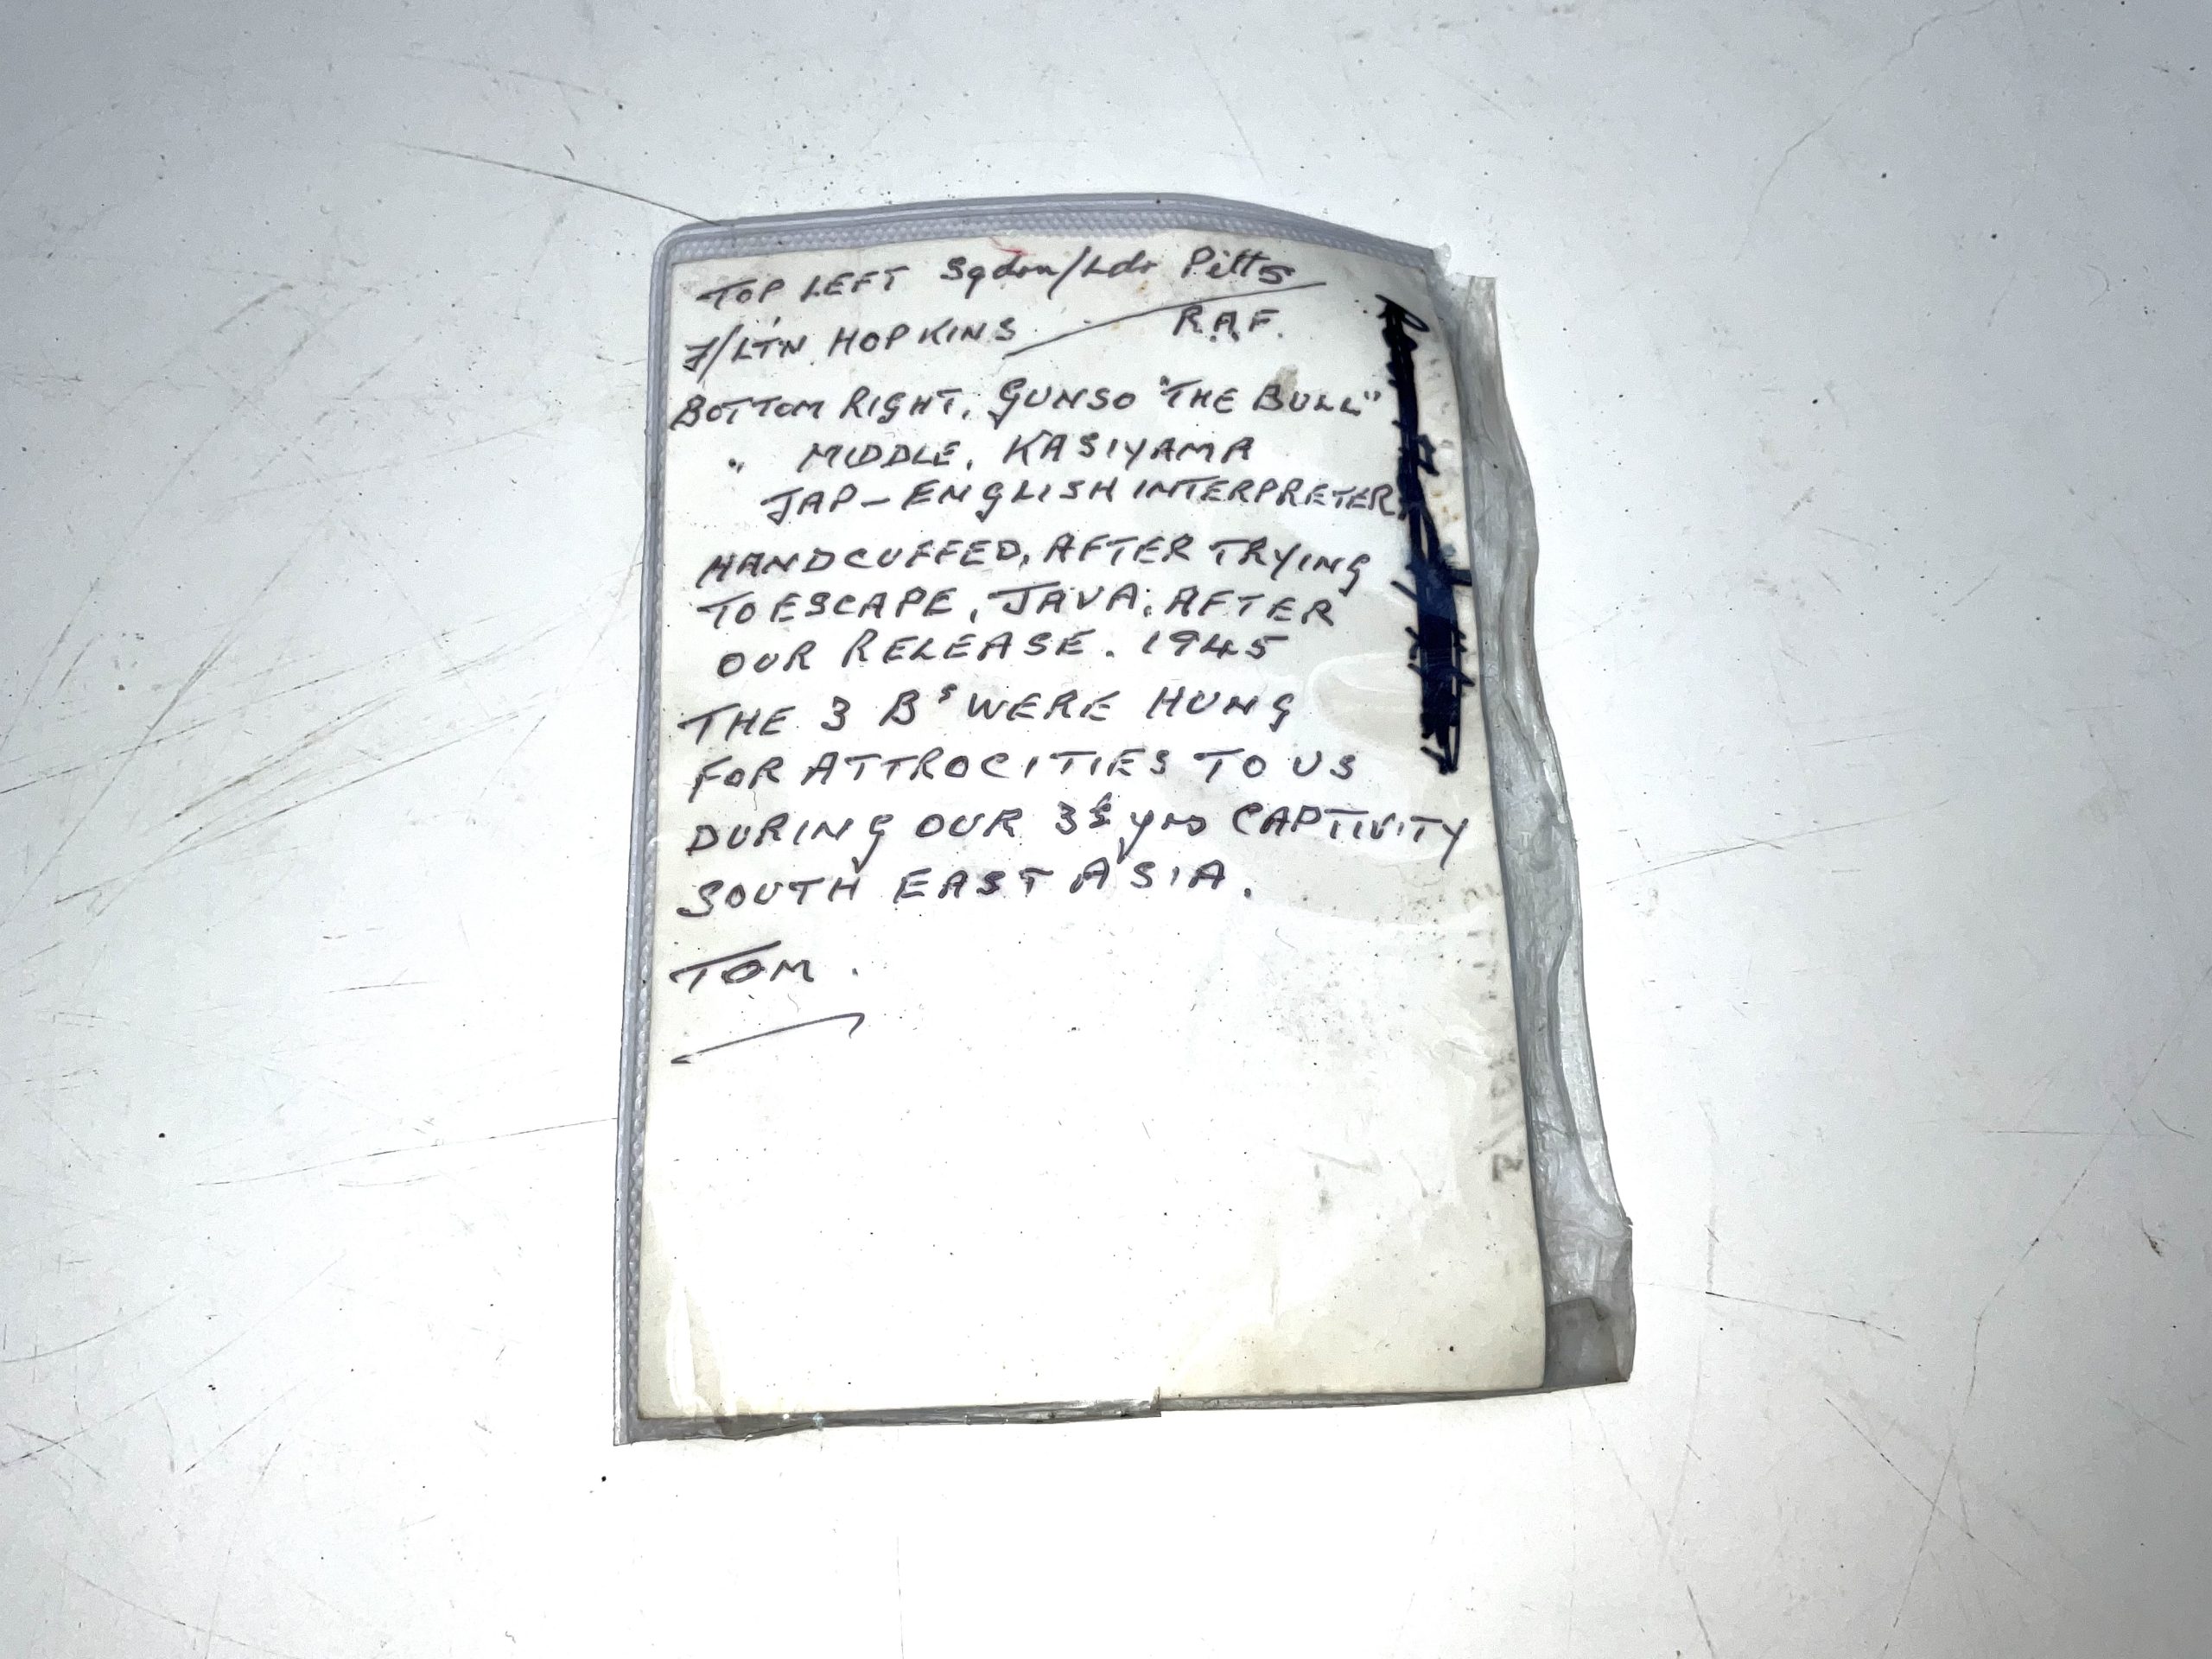 TOP LEFT Sqdrn/Ldr Pitts
F/LTN HOPKINS R.A.F.
BOTTOM RIGHT, GUNSO "THE BULL"
" MIDDLE, KASIYAMA
JAP-ENGLISH INTERPRETER,
HANDCUFFED, AFTER TRYING
TO ESCAPE, JAVA, AFTER
OUR RELEASE. 1945
THE 3 Bs WERE HUNG
FOR ATTROCITIES TO US
DURING OUR 3½ yrs CAPTIVITY
SOUTH EAST ASIA.
TOM.